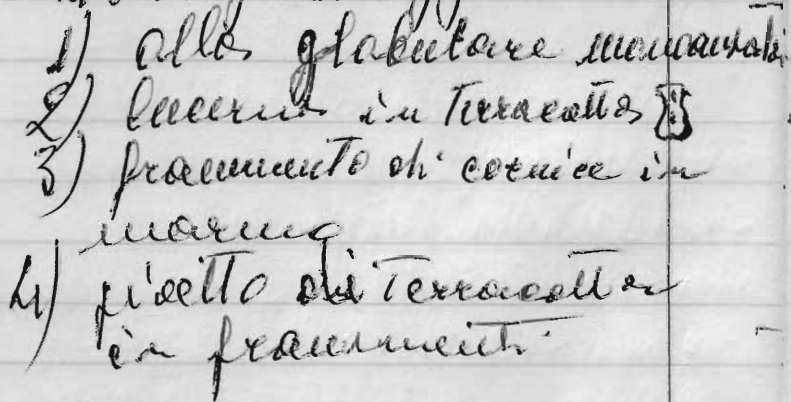 1) olla globulare monoansata
2) lucerna in Terracotta
3) frammento di cornice in
marmo
4) piatto di Terracotta
in frammenti